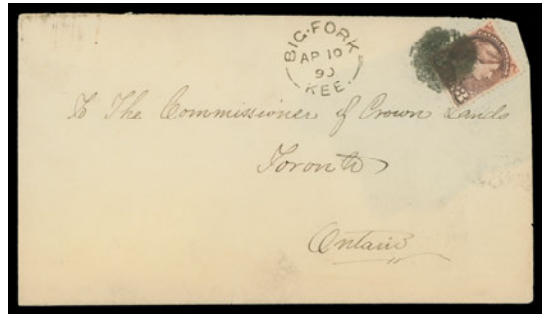 BIG·FORK
AP 10
90
KEE·
To The Commissioner of Crown Lands
Toronto
Ontario